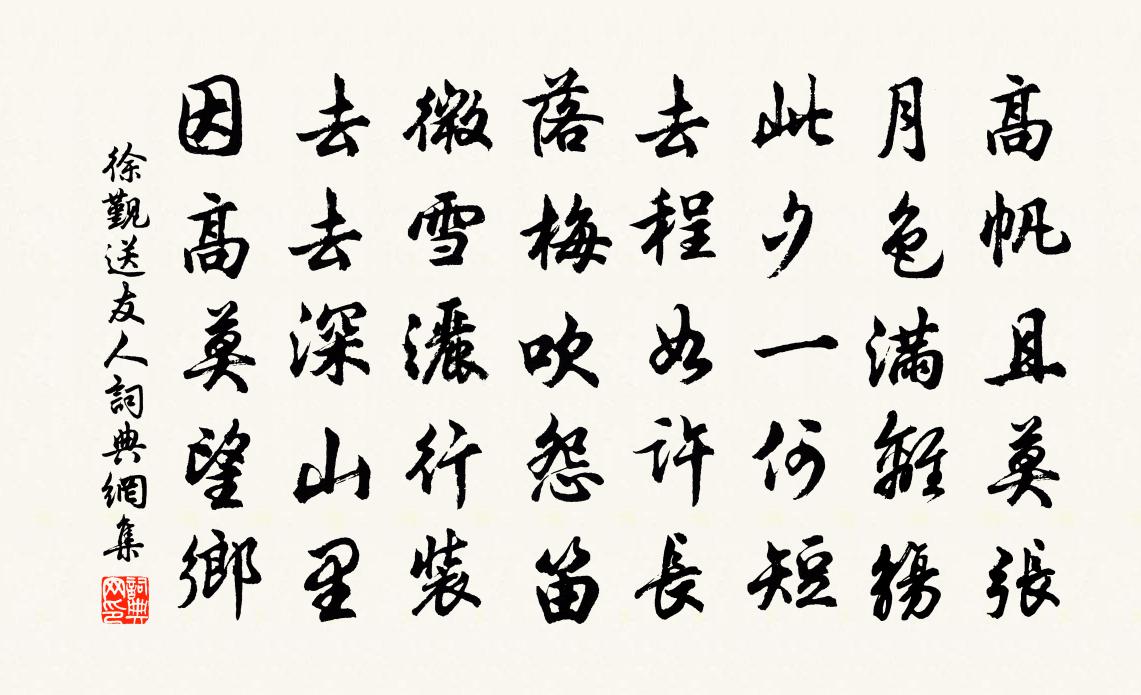 高帆且莫張
月色滿離觴
此夕一何短
去程如許長
落梅吹怨笛
微雪灑行裝
去去深山里
因高莫望鄉
徐觀送友人詞典網集
詞典網印